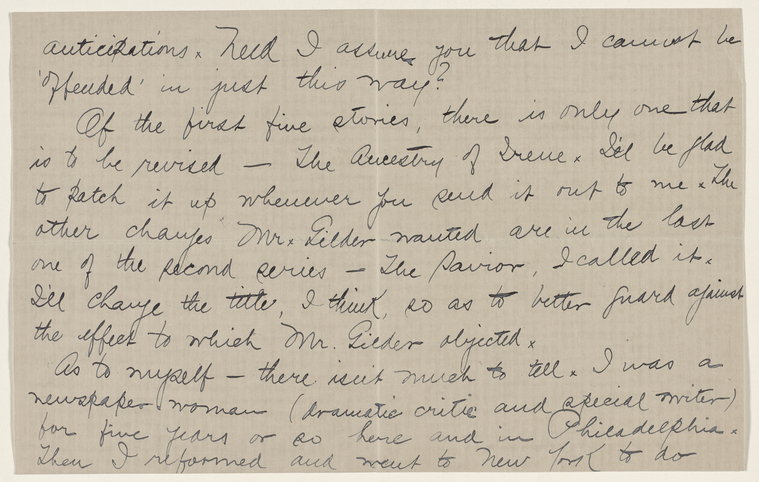 anticipations. Need I assure you that I cannot be
'offended' in just this way?
Of the first five stories, there is only one that
is to be revised — The Ancestry of Irene. I'll be glad
to patch it up whenever you send it out to me. The
other changes Mr. Gilder wanted are in the last
one of the second series — The Savior, I called it.
I'll change the title, I think, so as to better guard against
the effect to which Mr. Gilder objected.
As to myself — there isn't much to tell. I was a
newspaper woman (dramatic critic and special writer)
for five years or so here and in Philadelphia.
Then I reformed and went to New York to do